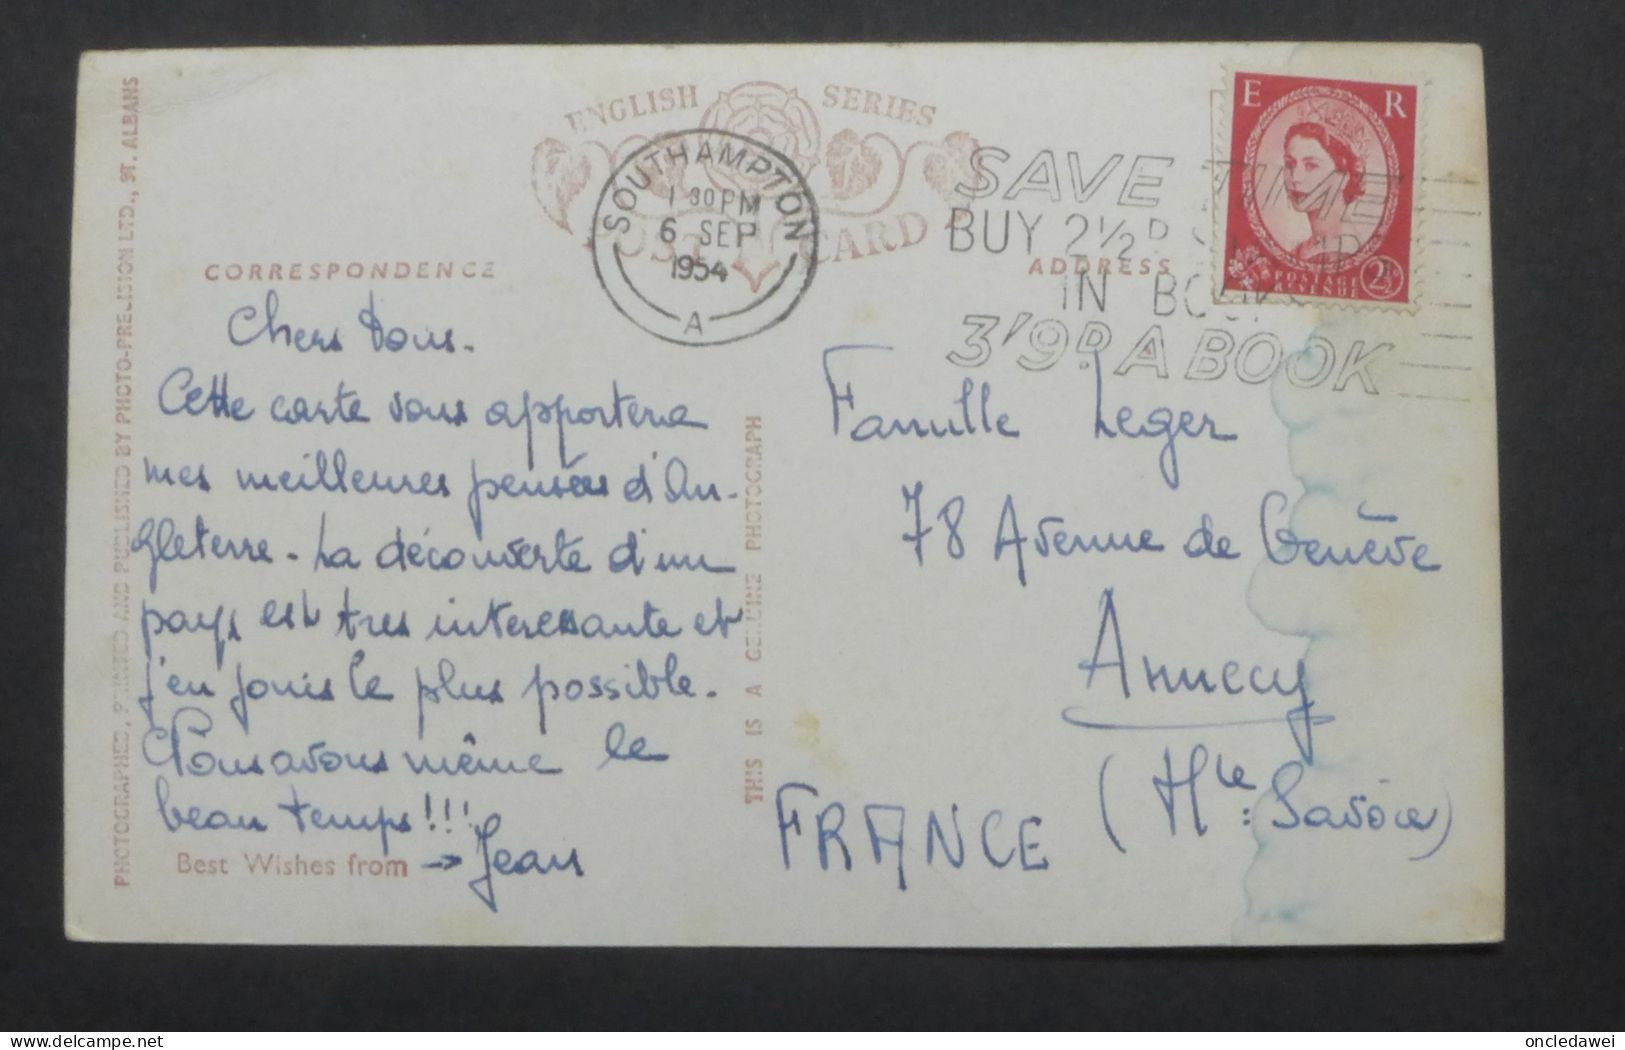 PHOTOGRAPHED, PRINTED AND PUBLISHED BY PHOTO-PRECISION LTD., ST. ALBANS
ENGLISH SERIES
POST CARD
SOUTHAMPTON
1 30 PM
6 SEP
1954
A
SAVE TIME
BUY 2½D
IN BOOKS
3'9D. A BOOK
E R
POSTAGE
REVENUE
2½D
CORRESPONDENCE
ADDRESS
Chers tous.
Cette carte vous apportera
mes meilleures pensées d'An-
gleterre. La découverte d'un
pays est tres interessante et
j'en jouis le plus possible.
Nous avons même le
beau temps!!!
Best Wishes from → Jean
THIS IS A GENUINE PHOTOGRAPH
Famille Leger
78 Avenue de Genève
Annecy
(Hte: Savoie)
FRANCE
delcampe.net
oncledawei